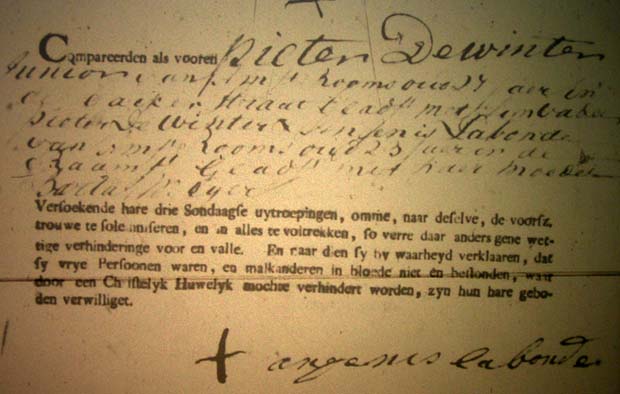 Compareerden als vooren Pieter Dewinter
Junior van amst Rooms out 27 jaer in
straat geadst met syn vader
Pieter De Winter & en Labonde
van amst Rooms out 23 jaer in de
geadst met haer moeder
Versoekende hare drie Sondaagse uytroepingen, omme, naar deselve, de voorsz.
trouwe te solemniseren, en in alles te voltrekken, so verre daar anders gene wet-
tige verhinderinge voor en valle. En naar dien sy by waarheyd verklaaren, dat
sy vrye Persoonen waren, en malkanderen in bloede niet en bestonden, waar
door een Christelyk Huwelyk mochte verhindert worden, zyn hun hare gebo-
den verwilliget.
angenis labonde